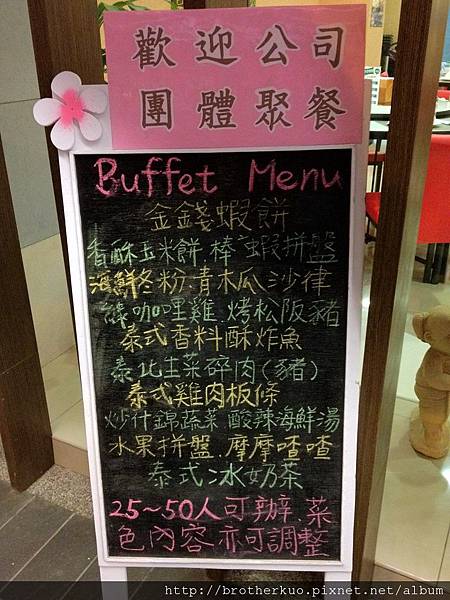 歡迎公司
團體聚餐
Buffet Menu
金錢蝦餅
香酥玉米餅.棒蝦拼盤
海鮮冬粉.青木瓜沙律
綠咖哩雞.烤松阪豬
泰式香料酥炸魚
泰北生菜碎肉(豬)
泰式雞肉板條
炒什錦蔬菜 酸辣海鮮湯
水果拼盤.摩摩喳喳
泰式冰奶茶
25~50人可辦.菜
色內容亦可調整
http://brotherkuo.pixnet.net/album